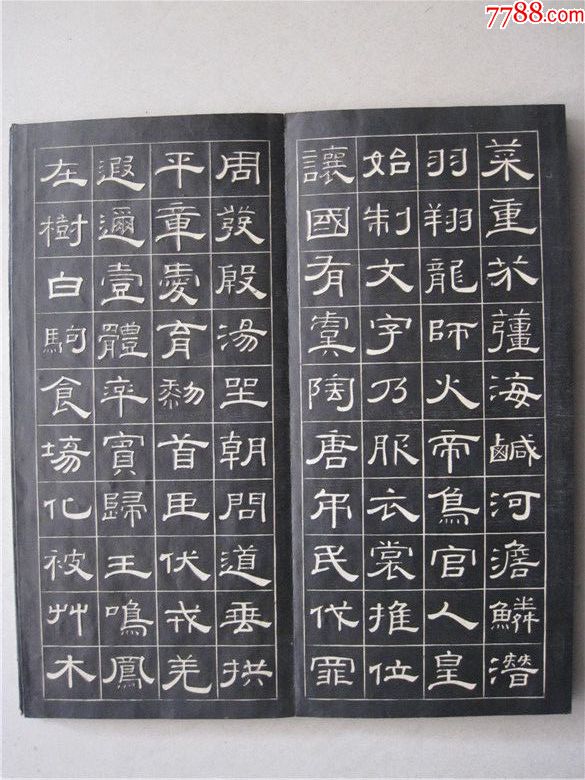 7788.com
菜重芥薑海鹹河澹鱗潛
羽翔龍師火帝鳥官人皇
始制文字乃服衣裳推位
讓國有虞陶唐弔民伐罪
周發殷湯坐朝問道垂拱
平章愛育黎首臣伏戎羌
遐邇壹體率賓歸王鳴鳳
在樹白駒食場化被艸木